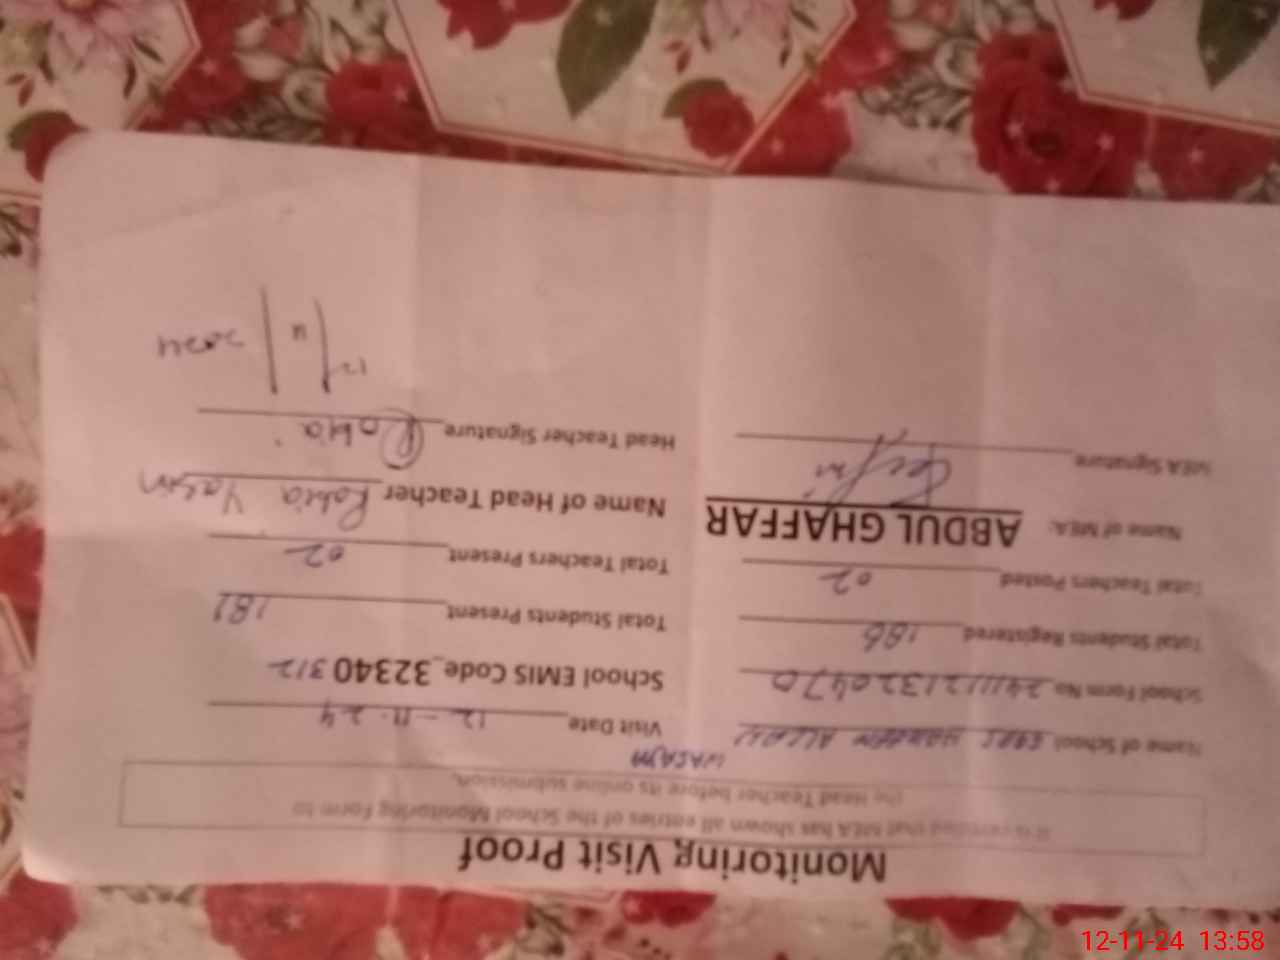 Monitoring Visit Proof
It is certified that MEA has shown all entries of the School Monitoring Form to
the Head Teacher before its online submission.
WASAYA
Name of School GGPS
Visit Date 12-11-24
School Form No
School EMIS Code_32340312
Total Students Registered 186
Total Students Present
Total Teachers Posted 02
Total Teachers Present 02
Name of MEA: ABDUL GHAFFAR
Name of Head Teacher Rabia Yasin
MEA Signature
Head Teacher Signature Rabia
12/11/2024
12-11-24 13:58